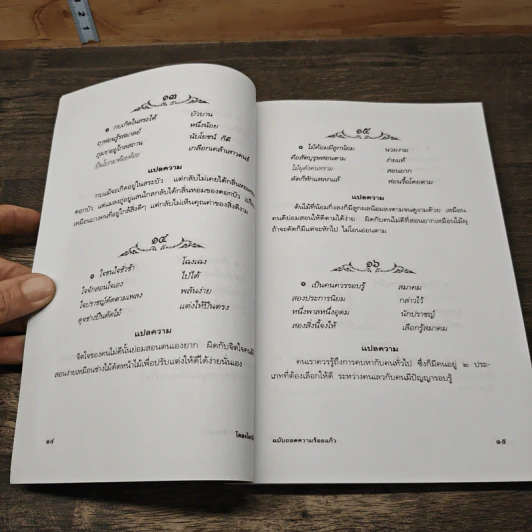 ๑๓
๏ กบเกิดในสระใต้ บัวบาน
ฤๅห่อนรู้รสมาลย์ หนึ่งน้อย
ภุมราอยู่ไกลสถาน นับโยชน์ ก็ดี
บินโบกมาค้อยค้อย เกลือกเคล้าเสาวคนธ์
แปลความ
กบแม้จะเกิดอยู่ในสระบัว แต่กลับไม่เคยได้กลิ่นหอมของ
ดอกบัว แต่แมลงภู่อยู่แสนไกลกลับได้กลิ่นหอมของดอกบัว
เหมือนบางคนที่อยู่ใกล้สิ่งดีๆ แต่กลับไม่เห็นคุณค่าของสิ่งดีงาม
๑๔
๏ ใจชนใจชั่วช้า โฉงเฉง
ใจจักสอนใจเอง ไป่ได้
ใจปราชญ์ดัดตามเพลง พลันง่าย
ดุจช่างปืนดัดไม้ แต่งให้ปืนตรง
แปลความ
จิตใจของคนไม่ดีนั้นย่อมสอนตนเองยาก ผิดกับจิตใจคนดี
สอนง่ายเหมือนช่างไม้ดัดหน้าไม้เพื่อปรับแต่งให้ดีได้ง่ายนั่นเอง
๑๔
โคลงโลกนิติ
๑๕
๏ ไม้ค้อมมีลูกน้อม นวยงาม
คือสัตบุรุษสอนตาม ง่ายแท้
ไม้ผุดั่งคนทราม สอนยาก
ดัดก็หักแหลกแล้ ห่อนรื้อโดยตาม
แปลความ
ต้นไม้ที่น้อมกิ่งลงก็มีลูกผลน้อมลงตามจนดูงามด้วย เหมือน
คนดีย่อมสอนให้ดีตามได้ง่าย ผิดกับคนไม่ดีที่สอนยากเหมือนไม้ผุ
ถ้าจะดัดก็มีแต่จะหักไป ไม่โอนอ่อนตาม
๑๖
๏ เป็นคนควรรอบรู้ สมาคม
สองประการนิยม กล่าวไว้
หนึ่งพาลหนึ่งอุดม นักปราชญ์
สองสิ่งนี้จงให้ เลือกรู้สมาคม
แปลความ
คนเราควรรู้ถึงการคบหากับคนทั่วไป ซึ่งก็มีคนอยู่ ๒ ประ-
เภทที่ต้องเลือกให้ดี ระหว่างคนเลวกับคนมีปัญญารอบรู้
ฉบับถอดความร้อยแก้ว
๑๕